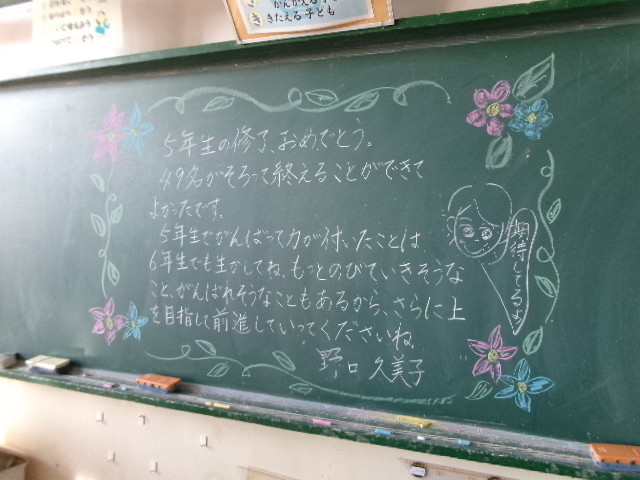 かんがえる子ども
きたえる子ども
5年生の修了、おめでとう。
49名がそろって終えることができて
よかったです。
5年生でがんばって力が付いたことは、
6年生でも生かしてね。もっとのびていきそうな
こと、がんばれそうなこともあるから、さらに上
を目指して前進していってくださいね。
野口 久美子
期待してるよ